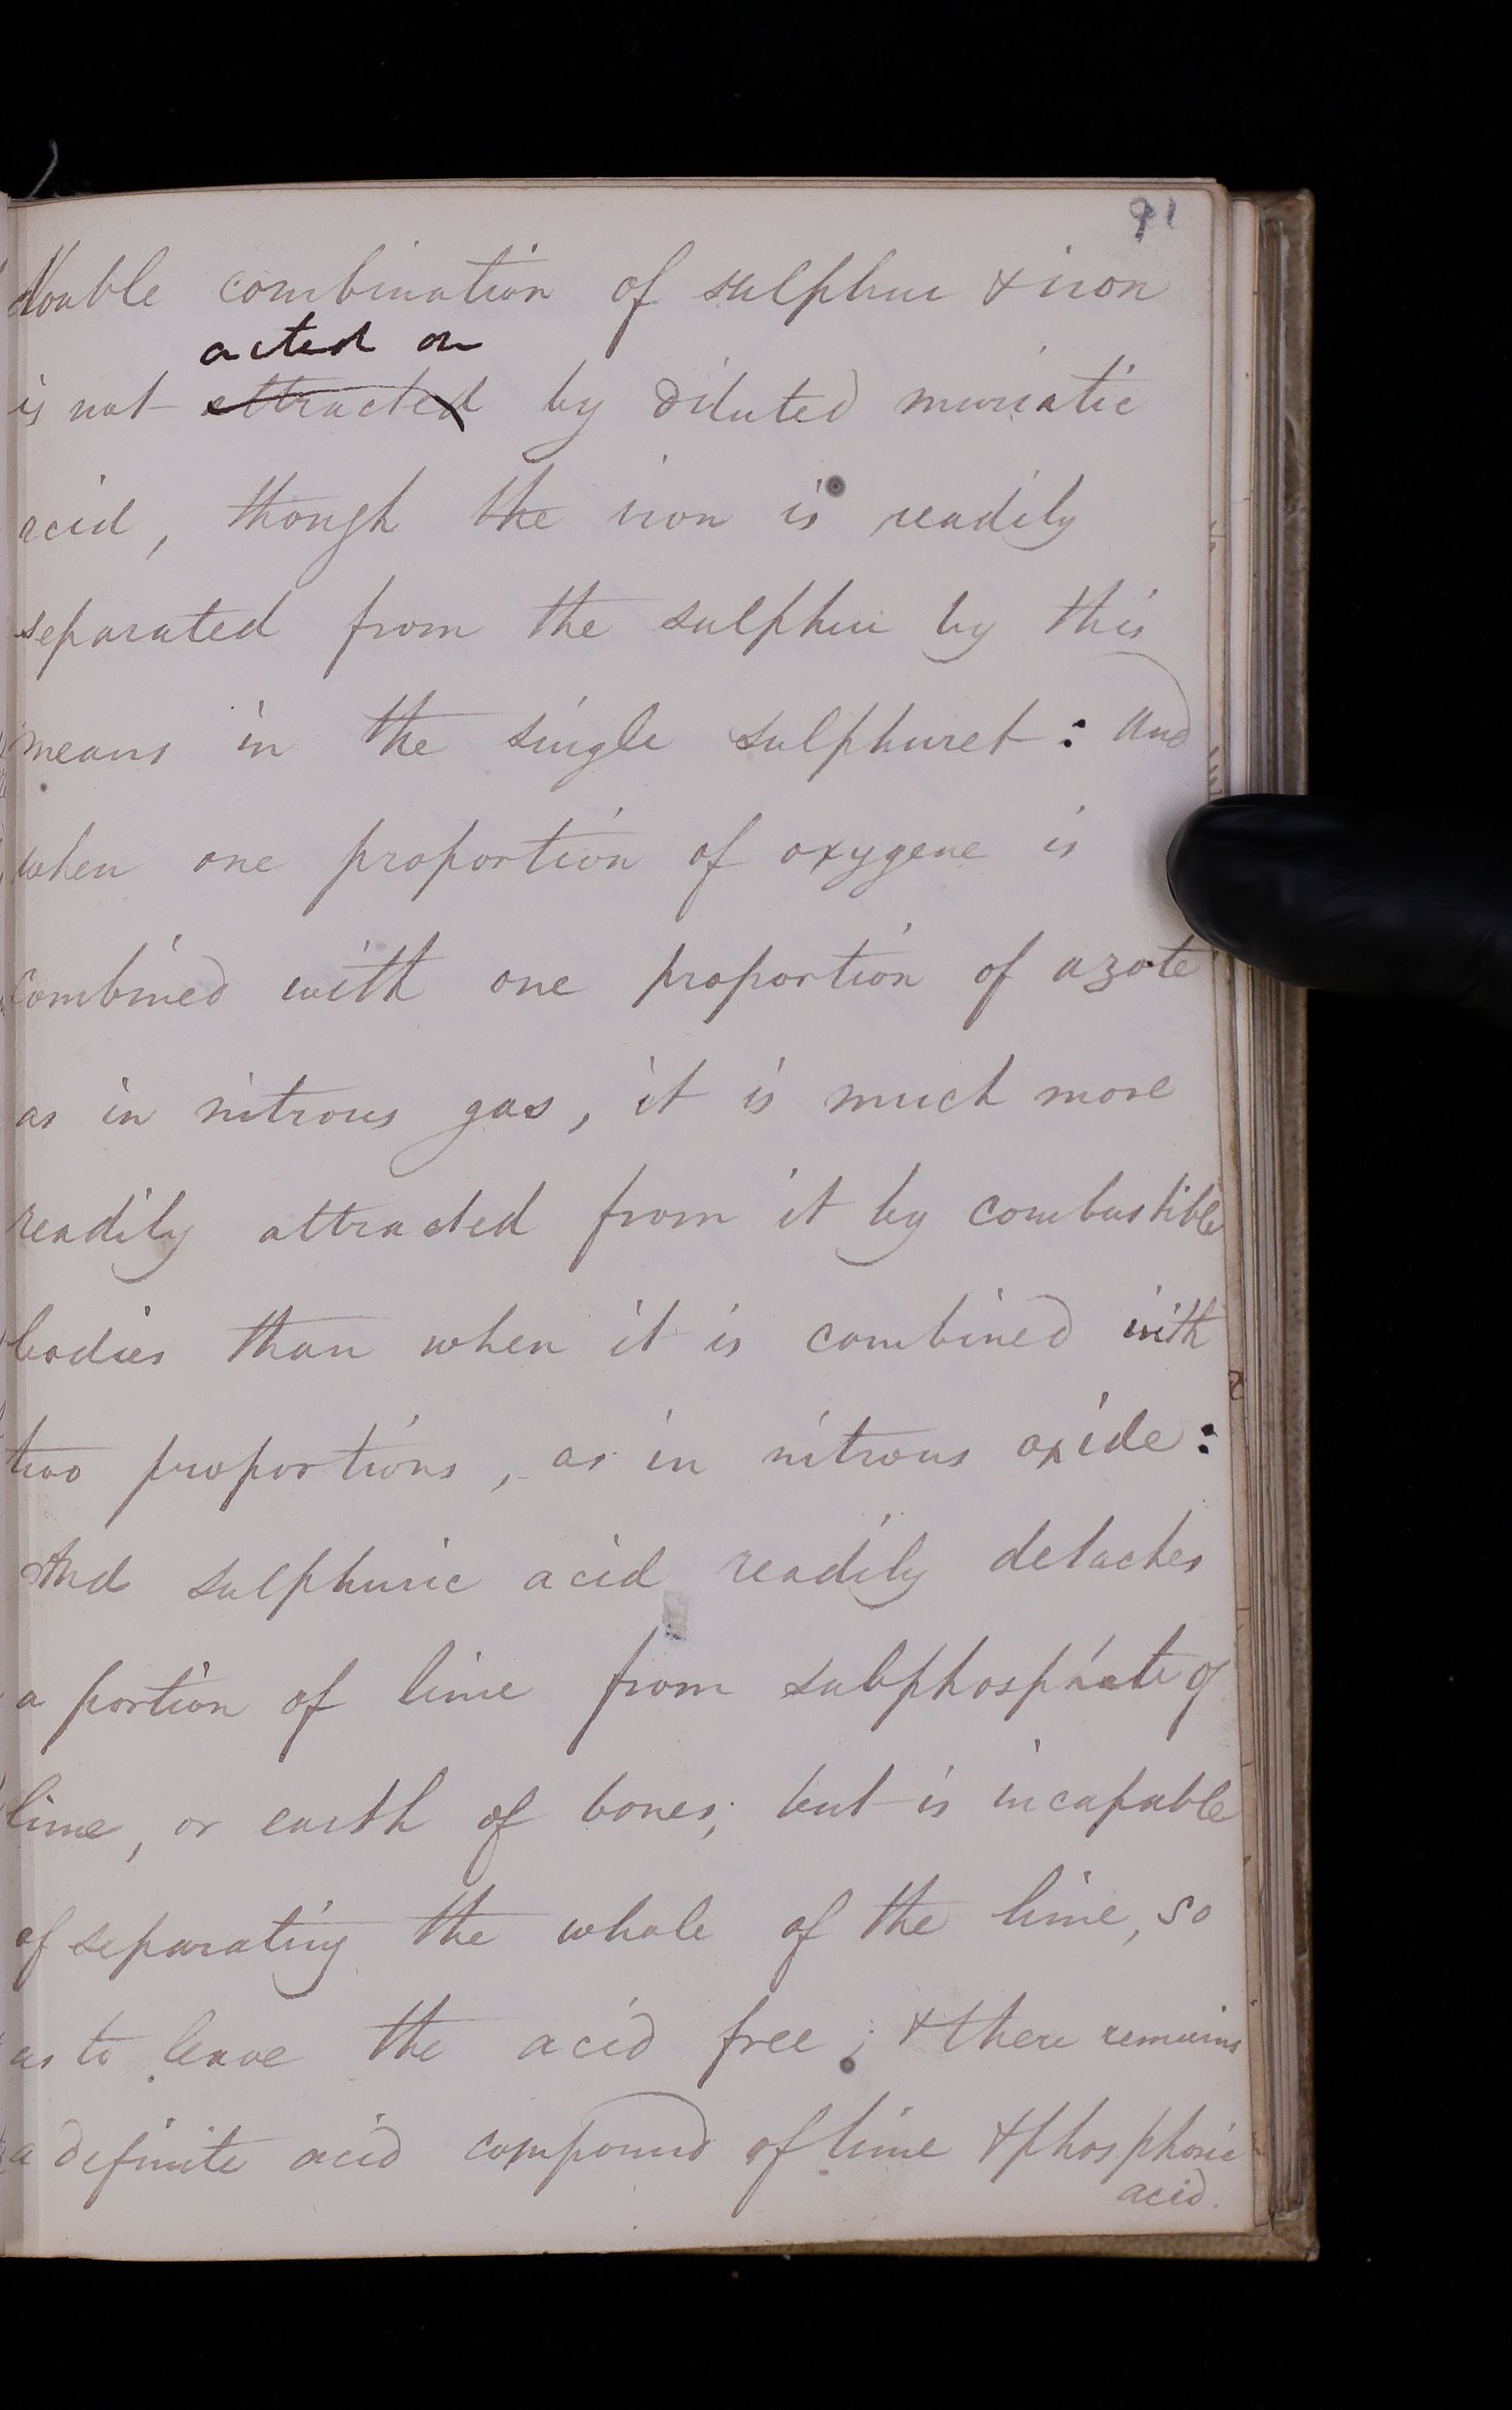 91
double combination of sulphur & iron
acted on
is not attracted by diluted muriatic
acid, though the iron is readily
separated from the sulphur by this
means in the single sulphuret : and
when one proportion of oxygene is
combined with one proportion of azote
as in nitrous gas, it is much more
readily attracted from it by combustible
bodies than when it is combined with
two proportions, as in nitrous oxide :
And sulphuric acid readily detaches
a portion of lime from subphosphate of
lime, or earth of bones; but is incapable
of separating the whole of the lime, so
as to leave the acid free; & there remains
a definite acid compound of lime & phosphoric
acid.